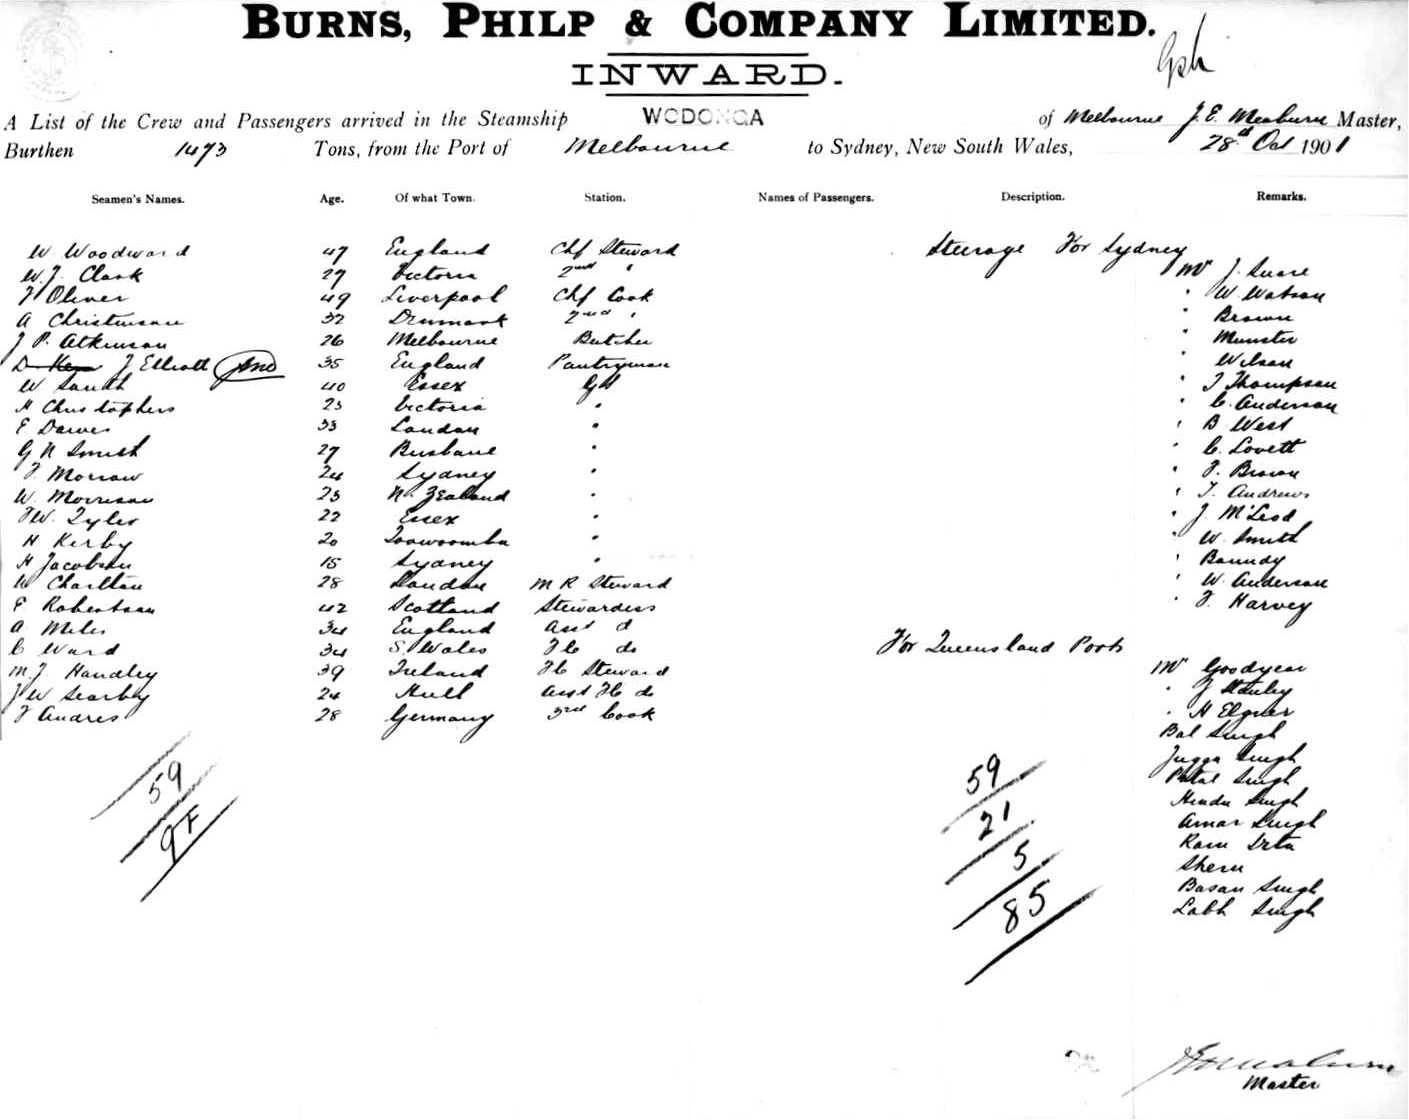 BURNS, PHILP & COMPANY LIMITED.
INWARD.
A List of the Crew and Passengers arrived in the Steamship WODONGA of Melbourne J. E. Meaburn Master,
Burthen 1473 Tons, from the Port of Melbourne to Sydney, New South Wales, 28th Oct 1901
Seamen's Names. Age. Of what Town. Station. Names of Passengers. Description. Remarks.
W. Woodward 47 England Chf Steward Steerage For Sydney
W. J. Clark 27 Victoria 2nd " Mr J.
F Oliver 49 Liverpool Chf Cook " W. Watson
A Christensen 32 Denmark 2nd " " Brown
J P. Atkinson 26 Melbourne Butcher " Munster
J Elliott 35 England Pantryman " Wilson
W Smith 40 Essex GS " T Thompson
H Christophers 23 Victoria " " C. Anderson
E Dawes 33 London " " B West
G N Smith 27 Brisbane " " C. Lovett
F. Morrow 24 Sydney " " F. Brown
W. Morrison 23 N. Zealand " " T. Andrews
F W. Tyler 22 Essex " " J. McLeod
H Kirby 20 Toowoomba " " W. Smith
H Jacobson 15 Sydney " " Boundy
W Charlton 28 London M R Steward " W. Anderson
E Robertson 42 Scotland Stewardess " F. Harvey
A Miles 34 England Asst do
C Ward 34 S. Wales FC do For Queensland Ports
M. J. Handley 39 Ireland FC Steward Mr Goodyear
J W Searby 24 Hull Asst FC do " J Stanley
F Andres 28 Germany 3rd Cook " H Elgner
Bal Singh
Jugga Singh
Singh
Hindu Singh
Amar Singh
Ram
Sheru
Basan Singh
Labh Singh
59
9F
59
21
5
85
Master